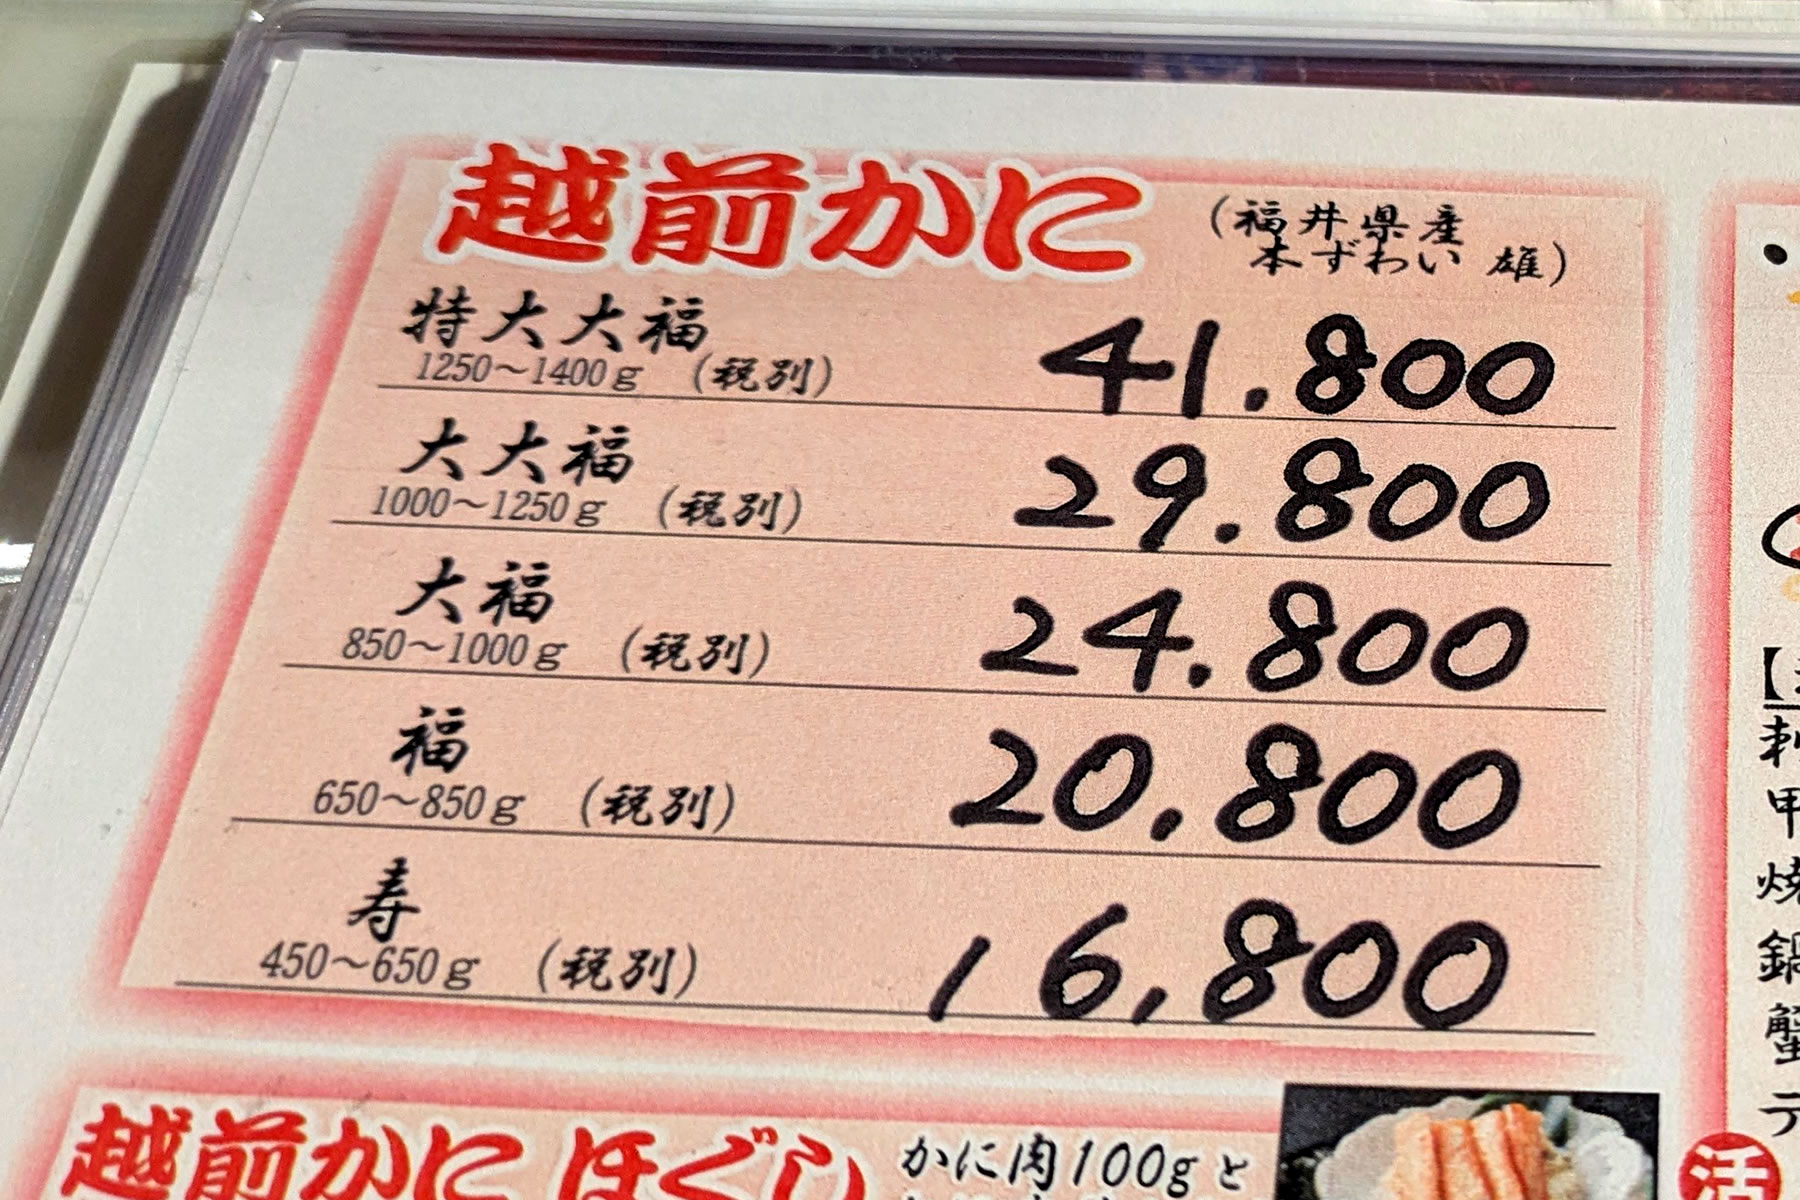 越前かに
(福井県産
本ずわい 雄)
特大大福 41.800
1250～1400g (税別)
大大福 29.800
1000～1250g (税別)
大福 24.800
850～1000g (税別)
福 20.800
650～850g (税別)
寿 16,800
450～650g (税別)
越前かに ほぐし
かに肉100gと
甲
鍋
蟹
テ
活